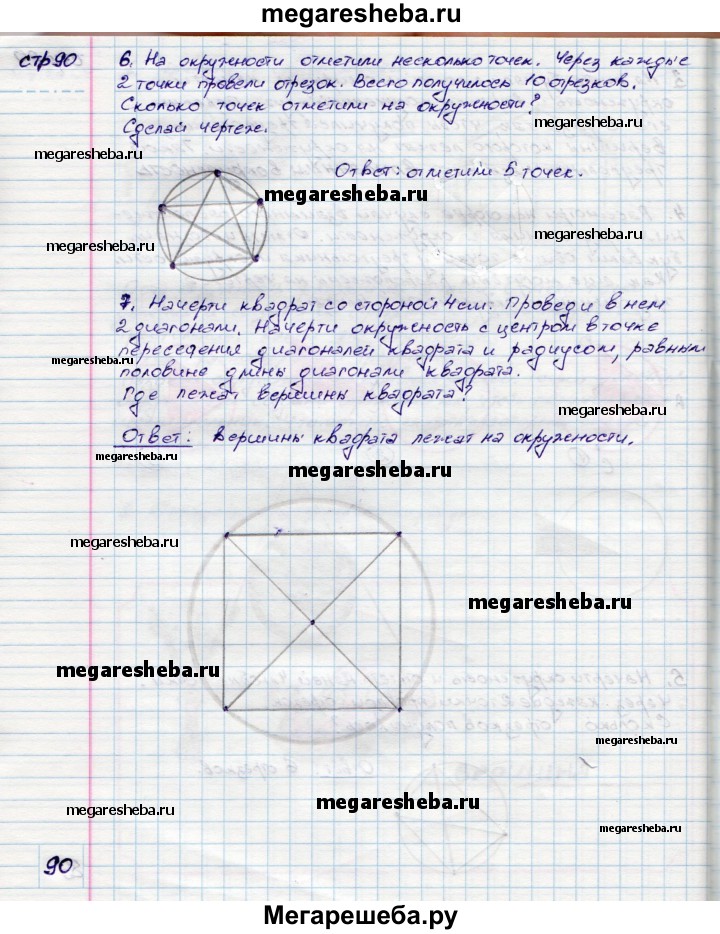 megaresheba.ru
стр 90
6. На окружности отметили несколько точек. Через каждые
2 точки провели отрезок. Всего получилось 10 отрезков.
Сколько точек отметили на окружности?
megaresheba.ru
Сделай чертеж.
megaresheba.ru
Ответ: отметили 5 точек.
megaresheba.ru
megaresheba.ru
megaresheba.ru
7. Начерти квадрат со стороной 4 см. Проведи в нем
2 диагонали. Начерти окружность с центром в точке
переседения диагоналей квадрата и радиусом, равным
megaresheba.ru
половине длины диагонали квадрата.
Где лежат вершины квадрата?
megaresheba.ru
Ответ: вершины квадрата лежат на окружности.
megaresheba.ru
megaresheba.ru
megaresheba.ru
megaresheba.ru
megaresheba.ru
megaresheba.ru
megaresheba.ru
megaresheba.ru
megaresheba.ru
90
Мегарешеба.ру